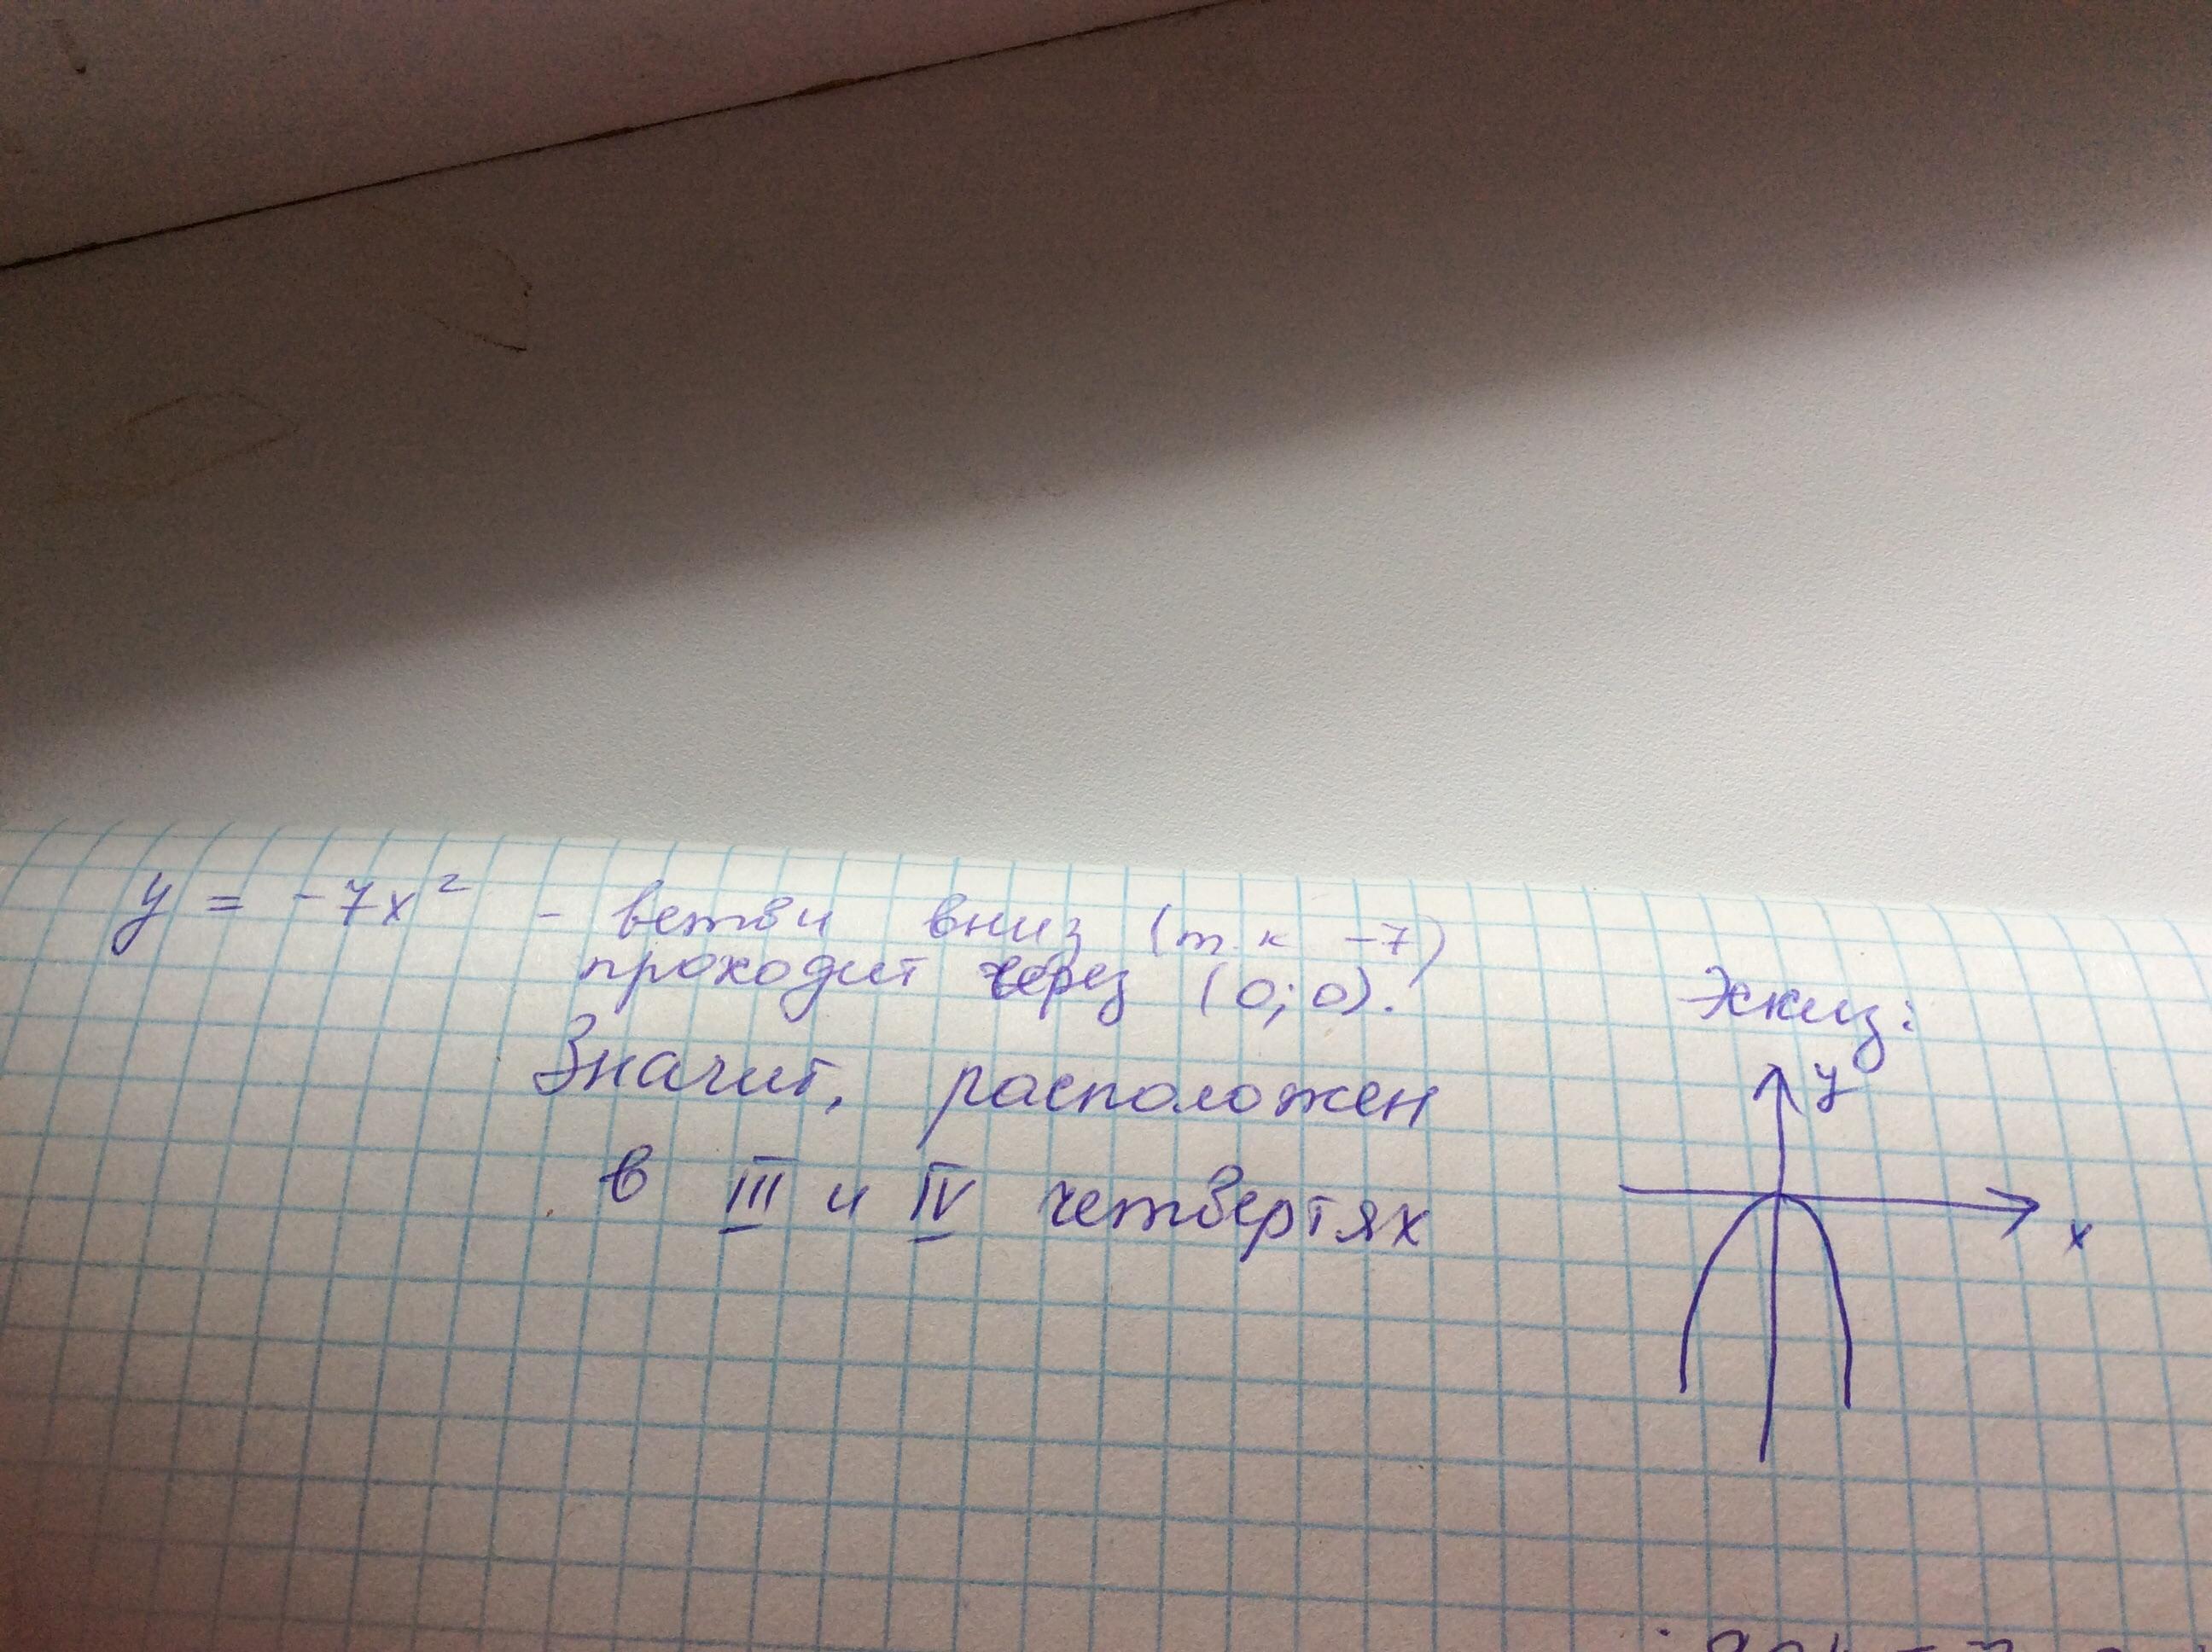 y = -7x² - ветви вниз (т.к -7)
проходит через (0;0).
Значит, расположен
в III и IV четвертях
Эскиз:
y
x